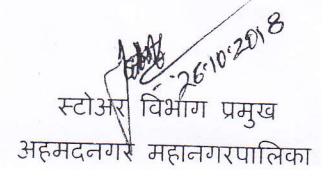 26.10.2018
स्टोअर विभाग प्रमुख
अहमदनगर महानगरपालिका